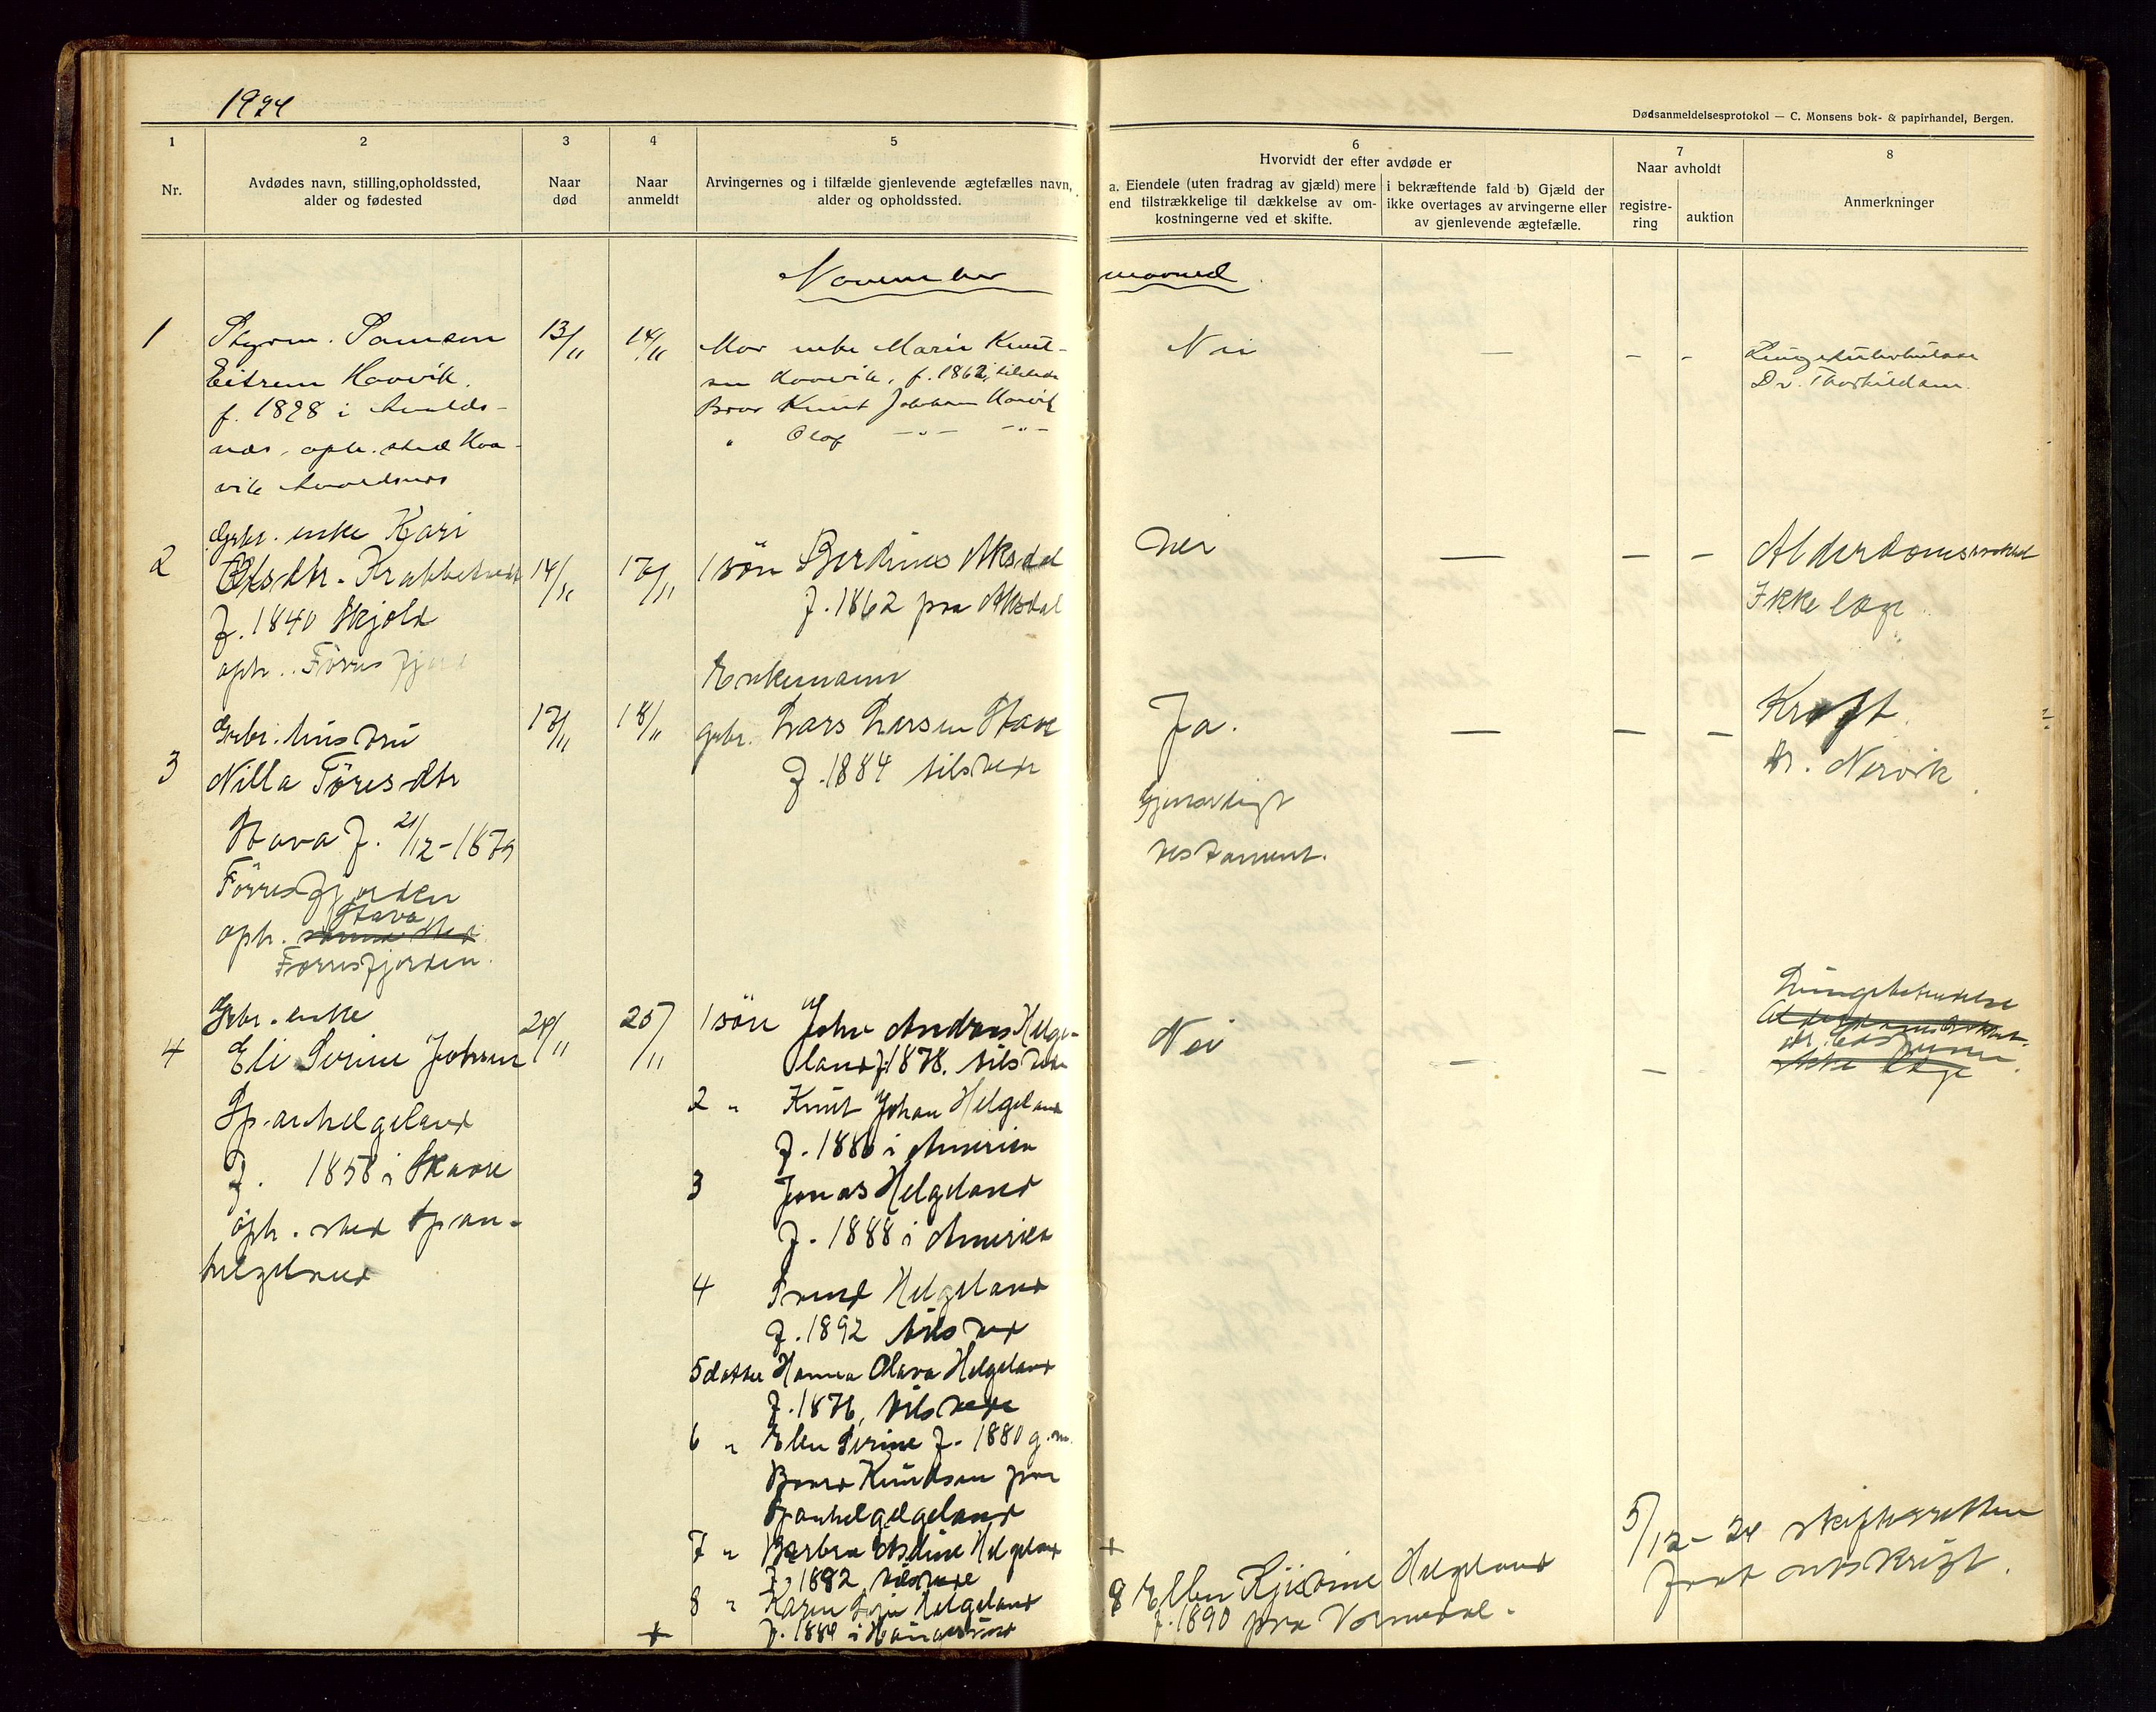 1924
Dødsanmeldelsesprotokol — C. Monsens bok- & papirhandel, Bergen.
1
2
3
4
5
6
7
8
Nr.
Avdødes navn, stilling, opholdssted,
alder og fødested
Naar
død
Naar
anmeldt
Arvingernes og i tilfælde gjenlevende ægtefælles navn,
alder og opholdssted.
Hvorvidt der efter avdøde er
a. Eiendele (uten fradrag av gjæld) mere
end tilstrækkelige til dækkelse av om-
kostningerne ved et skifte.
i bekræftende fald b) Gjæld der
ikke overtages av arvingerne eller
av gjenlevende ægtefælle.
Naar avholdt
registre-
ring
auktion
Anmerkninger
November maaned
1
Styrm. Samson
Eitrem Haavik.
f. 1898 i Avalds-
nes, oph. sted Haa-
vik Avaldsnes
13/11
14/11
Mor enke Marie Knut-
sen Haavik, f. 1862, tilstede
Bror Knut Johan Haavik
" Olaf -"- -"-
Nei
— — —
Lungetuberkulose
Dr. Thorkildsen.
2
Gbr. enke Kari
Olsdtr.
f. 1840 Skjold
oph. Førresfjord
14/11
17/11
1 søn Berdines Aksdal
f. 1862 paa Aksdal
Nei
— — —
Alderdomssvakhet
Ikke læge
3
Gbr. hustru
Nilla Töresdtr
Stava f. 21/12-1879
Förresfjorden
oph. Stava
samme sted
Førresfjorden.
17/11
18/11
Enkemann
gbr. Lars Larsen Stava
f. 1884 tilstede
Ja.
Gjensidigt
testament.
— — —
Kræft.
Dr. Nervik
4
Gbr. enke
Eli Serine Johnsen
Spanhelgeland
f. 1858 i Skaare
oph. sted Span-
helgeland
24/11
25/11
1 søn John Andreas Helge-
land f. 1878. tilstede
2 " Knut Johan Helgeland
f. 1886 i Amerika
3 Jonas Helgeland
f. 1888 i Amerika
4 Helgeland
f. 1892 tilsted
5 datter Hanna Olava Helgeland
f. 1876, tilstede
6 " Elen Serine f. 1880 g. m.
Baard Knudsen paa
Spanhelgelgeland
7 " Berbra Asline Helgeland
f. 1882 tilstede
8 " Karen Helgeland
f. 1884 i Haugesund
+
Nei
— —
Lungebetendelse
Alderdomssvakhet.
Ikke læge
+
9 Ellen Kjistine Helgeland
f. 1890 paa Vormedal.
5/12-24 skifteretten
faat utskrift.